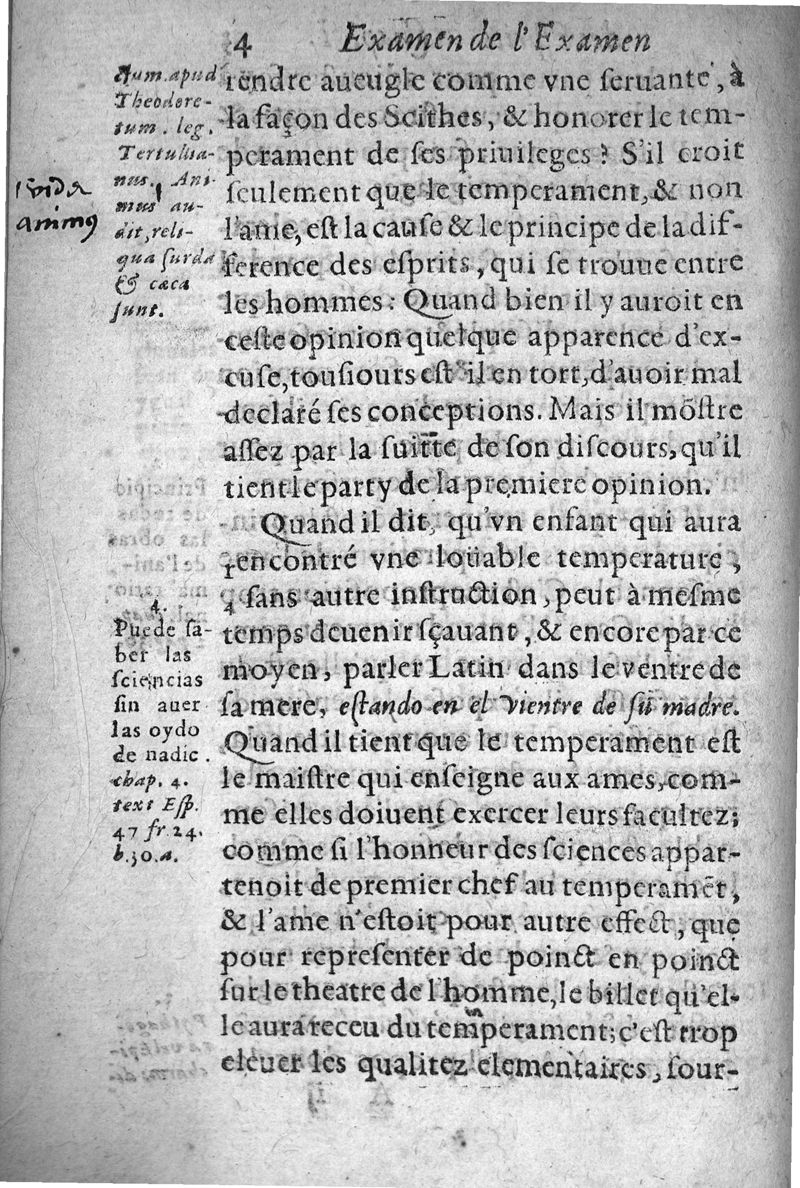 4 Examen de l'Examen
rendre aueugle comme vne seruante, à
la façon des Scithes, & honorer le tem-
perament de ses priuileges? S'il croit
seulement que le temperament, & non
l'ame, est la cause & le principe de la dif-
ference des esprits, qui se trouue entre
les hommes: Quand bien il y auroit en
ceste opinion quelque apparence d'ex-
cuse, tousiours est il en tort, d'auoir mal
declaré ses conceptions. Mais il mõstre
assez par la suitte de son discours, qu'il
tient le party de la premiere opinion.
Quand il dit, qu'vn enfant qui aura
rencontré vne loüable temperature,
4 sans autre instruction, peut à mesme
temps deuenir sçauant, & encore par ce
moyen, parler Latin dans le ventre de
sa mere, estando en el vientre de su madre.
Quand il tient que le temperament est
le maistre qui enseigne aux ames, com-
me elles doiuent exercer leurs facultez;
comme si l'honneur des sciences appar-
tenoit de premier chef au temperamẽt,
& l'ame n'estoit pour autre effect, que
pour representer de poinct en poinct
sur le theatre de l'homme, le billet qu'el-
le aura receu du temperament; c'est trop
eleuer les qualitez elementaires, sour-
Num. apud
Theodore-
tum. leg.
Tertulia-
nus. Ani-
mus au-
dit, reli-
qua surda
& cæca
sunt.
animus
4.
Puede sa-
ber las
sciencias
sin auer
las oydo
de nadie.
chap. 4.
text Esp.
47 fr. 24.
b. 30. a.